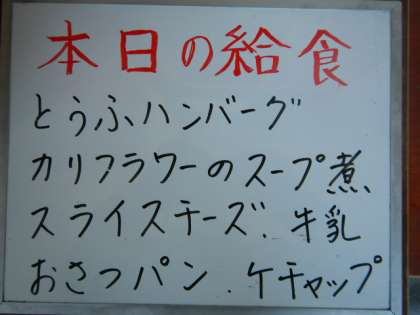 本日の給食
とうふハンバーグ
カリフラワーのスープ煮
スライスチーズ. 牛乳
おさつパン. ケチャップ